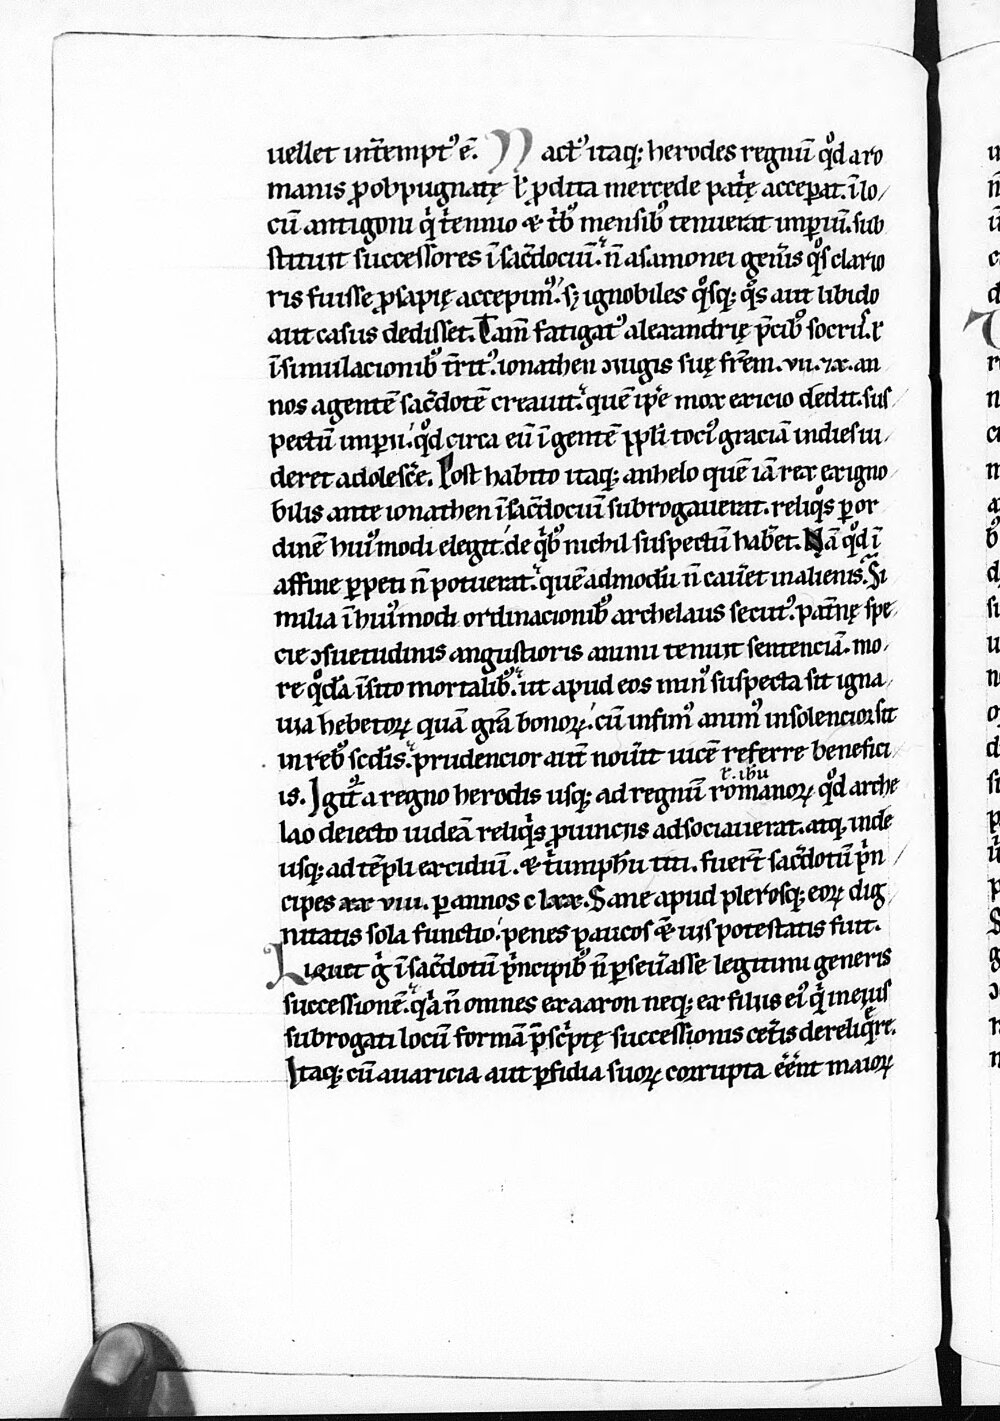 uellet int̃empt᷒ ē. Nact᷒ itaq; herodes regnũ qͦd a ro
manis ꝓ obpugnatę ł ꝓdita mercede pat'ę acceperat. ĩ lo/
cũ antigoni qͥ t'ennio & t'b᷒ mensib᷒ tenuerat imꝑiũ. sub
stituit successores ĩ sac̃docuĩ. ñ asamonei gen̾is qͦs clario
ris fuisse ꝓsapię accepim᷒. sꝫ ignobiles qͦsq; qͦs aut libido
aut casus dedisset. Tam̃ fatigat᷒ alexandrię p̃cib᷒ socrus. ⁊
ĩsimulacionib᷒ t̃rit᷒. ionathen ↄiugis suę fr̃em. vii. ⁊ x. an
nos agentẽ sac̃dotẽ creauit. quẽ ip̃e mox exicio dedit. sus/
pectũ imꝑii. qͦd circa eũ ĩgentẽ ppl̃i toci᷒ graciã indies ui/
deret adolesc̃e. Post habito itaq; anhelo quẽ iã rex ex igno/
bilis ante ionathen ĩ sac̃docuĩ subrogauerat. reliqͦs ꝑ or
dinẽ hui᷒modi elegit. de qͥb᷒ nichil suspectũ hab̃et. Nã qͦd ĩ
affine ꝑpeti ñ potuerat. quẽadmodũ ñ cau̾et in alienis. Si
milia ĩ hui᷒modi ordinacionib᷒ archelaus secut᷒. pat̾nę spe/
cie ↄsuetudinis angustioris animi tenuit sentenciã. mo/
re qͦdã ĩsito mortalib᷒. ut apud eos min᷒ suspecta sit igna/
uia hebetoꝝ quã gr̃a bonoꝝ. cũ infim᷒ anim᷒ insolencior sit
in reb᷒ sc̃dis. prudencior aut̃ nouit uicẽ referre benefici/
is. Igit̾ a regno herodis usq; ad regnũ romanoꝝ qͦd arche
lao deiecto iudeã reliqͥs ꝓuinciis adsociauerat. atq. inde
usq; ad tẽpli excidiũ. & t'umphũ titi. fuer̃t sac̃dotũ pͥn /
cipes xx viii. ꝑ annos c lxx. Sane apud plerosq; eoꝝ dig
nitatis sola functio. penes paucos & ius potestatis fuit.
Liquet gͥ ĩ sac̃dotũ pͥncipib᷒ ñ ꝑseu̾asse legitimi generis
successionẽ. qͥa ñ omnes ex aaron neq; ex filiis ei᷒ qͥ in eius
subrogati locũ formã p̃sc'ptę successionis cet̾is dereliqͥre.
Itaq; cũ auaricia aut ꝑfidia suoꝝ corrupta eẽnt maioꝝ